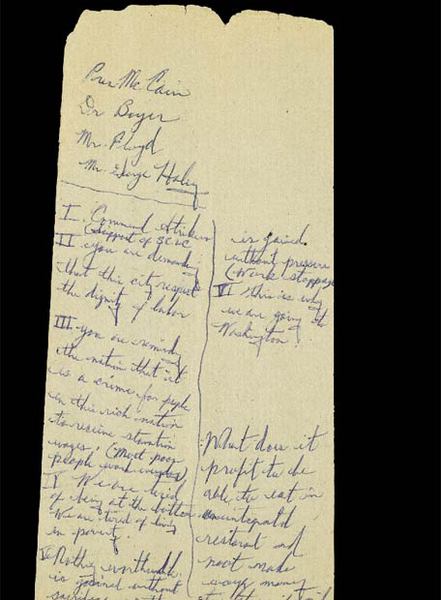 Pres Mc Cain
Dr Boyer
Mr. Floyd
Mr. George Haley
I. Commend strikers
(Support of SCLC
II you are demanding
that this city respect
the dignity of labor
III. you are reminding
the nation that it
is a crime for people
in this rich nation
to receive starvation
wages. (Most poor
people work everyday)
IV We are tired
of being at the bottom
We are tired of living
in poverty.
V Nothing worthwhile
is gained without
sacrifice
is gained
without pressure
(Work stoppage
VI This is why
we are going to
Washington.
What does it
profit to be
able to eat in
an integrated
restaurant and
not make
enough money